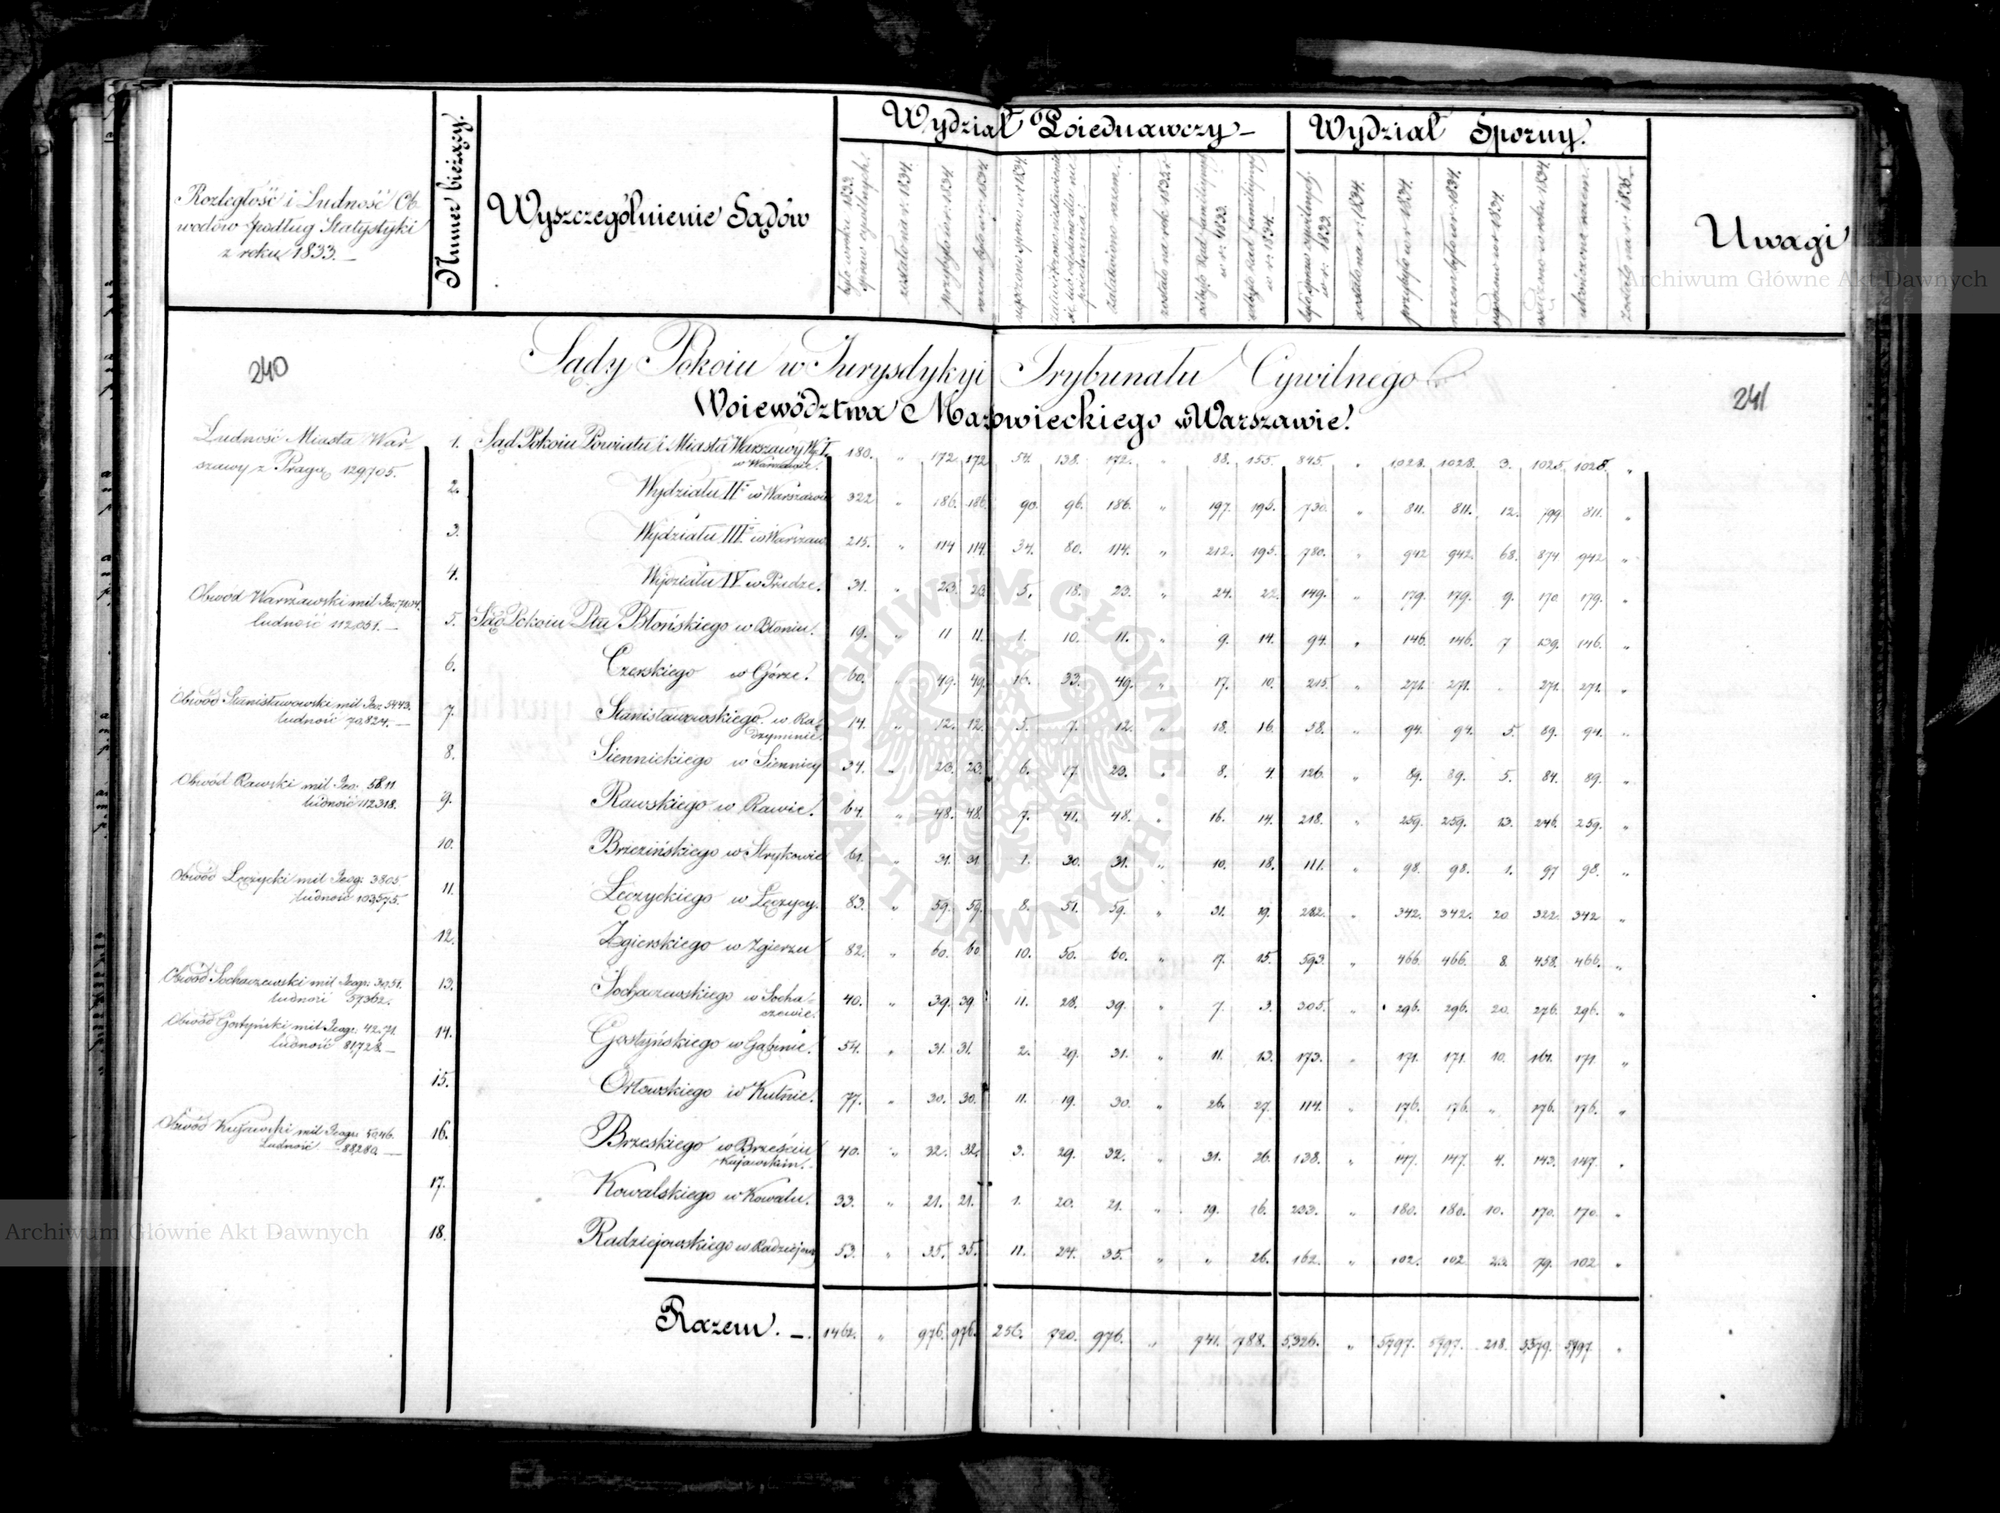 Wydział Poiednawczy
Wydział Sporny.
Rozległość i Ludność Ob-
wodów podług Statystyki
z roku 1833.
Numer bieżący.
Wyszczególnienie Sądów
Uwagi
było w roku 1833
spraw cywilnych.
zostało na r. 1834.
przybyło w r. 1834.
razem było w r. 1834.
załatwiono razem.
zostało na rok 1835.
było spraw cywilnych
w r. 1833.
zostało na r. 1834.
przybyło w r. 1834.
razem było w r. 1834.
osądzono w roku 1834.
zostało na r. 1835.
Archiwum Główne Akt Dawnych
240
241
Sądy Pokoiu w Jurysdykyi Trybunału Cywilnego
Woiewództwa Mazowieckiego w Warszawie.
Ludność Miasta War-
szawy z Pragą 129,705.
1. Sąd Pokoiu Powiatu i Miasta Warszawy W. I.
w Warszawie. 180. „ 172 172 54. 138. 172. „ 88. 155. 845. „ 1028. 1028. 3. 1025. 1028. „
2. Wydziału II w Warszawie 322 „ 186. 186. 90. 96. 186. „ 197. 195. 730. „ 811. 811. 12. 799. 811. „
3. Wydziału III w Warszaw. 215. „ 114 114. 34. 80. 114. „ 212. 195. 780. „ 942 942. 68. 874 942 „
4. Wydziału IV w Pradze. 31. „ 23. 23. 5. 18. 23. „ 24. 22. 149. „ 179. 179. 9. 170. 179. „
Obwód Warszawski mil
ludność 112,051.
5. Sąd Pokoiu Ptu Błońskiego w Błoniu. 19. „ 11 11. 1. 10. 11. „ 9. 14. 94. „ 146. 146. 7 139. 146. „
6. Czerskiego w Górze. 60. „ 49. 49. 16. 33. 49. „ 17. 10. 215. „ 271. 271. „ 271. 271. „
Obwód Stanisławowski mil Jeo. 5443.
ludność 70,824.
7. Stanisławowskiego w Ra-
dzyminie. 14. „ 12. 12. 5. 7. 12. „ 18. 16. 58. „ 94. 94. 5. 89. 94. „
8. Siennickiego w Siennicy 34. „ 23. 23. 6. 17. 23. „ 8. 4. 126. „ 89. 89. 5. 84. 89. „
Obwód Rawski mil Jeo: 58.11
ludność 112318.
9. Rawskiego w Rawie. 64. „ 48. 48. 7. 41. 48. „ 16. 14. 218. „ 259. 259. 13. 246. 259. „
10. Brzezińskiego w Strykowie 61. „ 31. 31 1. 30. 31. „ 10. 18. 111. „ 98. 98. 1. 97 98. „
Obwód Łęczycki mil Jeog: 3805
ludność 103,575.
11. Łęczyckiego w Łęczycy. 83. „ 59. 59. 8. 51. 59. „ 31. 19. 282. „ 342. 342. 20. 322. 342 „
12. Zgierskiego w Zgierzu 82. „ 60. 60 10. 50. 60. „ 17. 15. 593. „ 466. 466. 8. 458. 466. „
Obwód Sochaczewski mil Jeogr: 3951.
ludność 57362.
13. Sochaczewskiego w Socha-
czewie. 40. „ 39. 39. 11. 28. 39. „ 7. 3. 305. „ 296. 296. 20. 276. 296. „
Obwód Gostyński mil Jeogr: 42.71.
ludność 81,728.
14. Gostyńskiego w Gąbinie. 54. „ 31. 31. 2. 29. 31. „ 11. 13. 173. „ 171. 171. 10. 161. 171 „
15. Orłowskiego w Kutnie. 77. „ 30. 30. 11. 19. 30. „ 26. 27. 114. „ 176. 176. „ 176. 176. „
Obwód Kujawski mil Jeogr: 5046.
Ludność 88,280.
16. Brzeskiego w Brześciu
Kujawskim. 40. „ 32. 32. 3. 29. 32. „ 31. 26. 138. „ 147. 147. 4. 143. 147. „
17. Kowalskiego w Kowalu. 33. „ 21. 21. 1. 20. 21. „ 19. 16. 233. „ 180. 180. 10. 170. 170. „
18. Radziejowskiego w Radziejowie 53. „ 35. 35. 11. 24. 35. „ „ 26. 162. „ 102. 102 23. 79. 102 „
Razem. 1462. „ 976. 976. 256. 720. 976. „ 741. 788. 5,326. „ 5797. 5797. 218. 5,579. 5,797 „
ARCHIWUM GŁÓWNE AKT DAWNYCH
Archiwum Główne Akt Dawnych